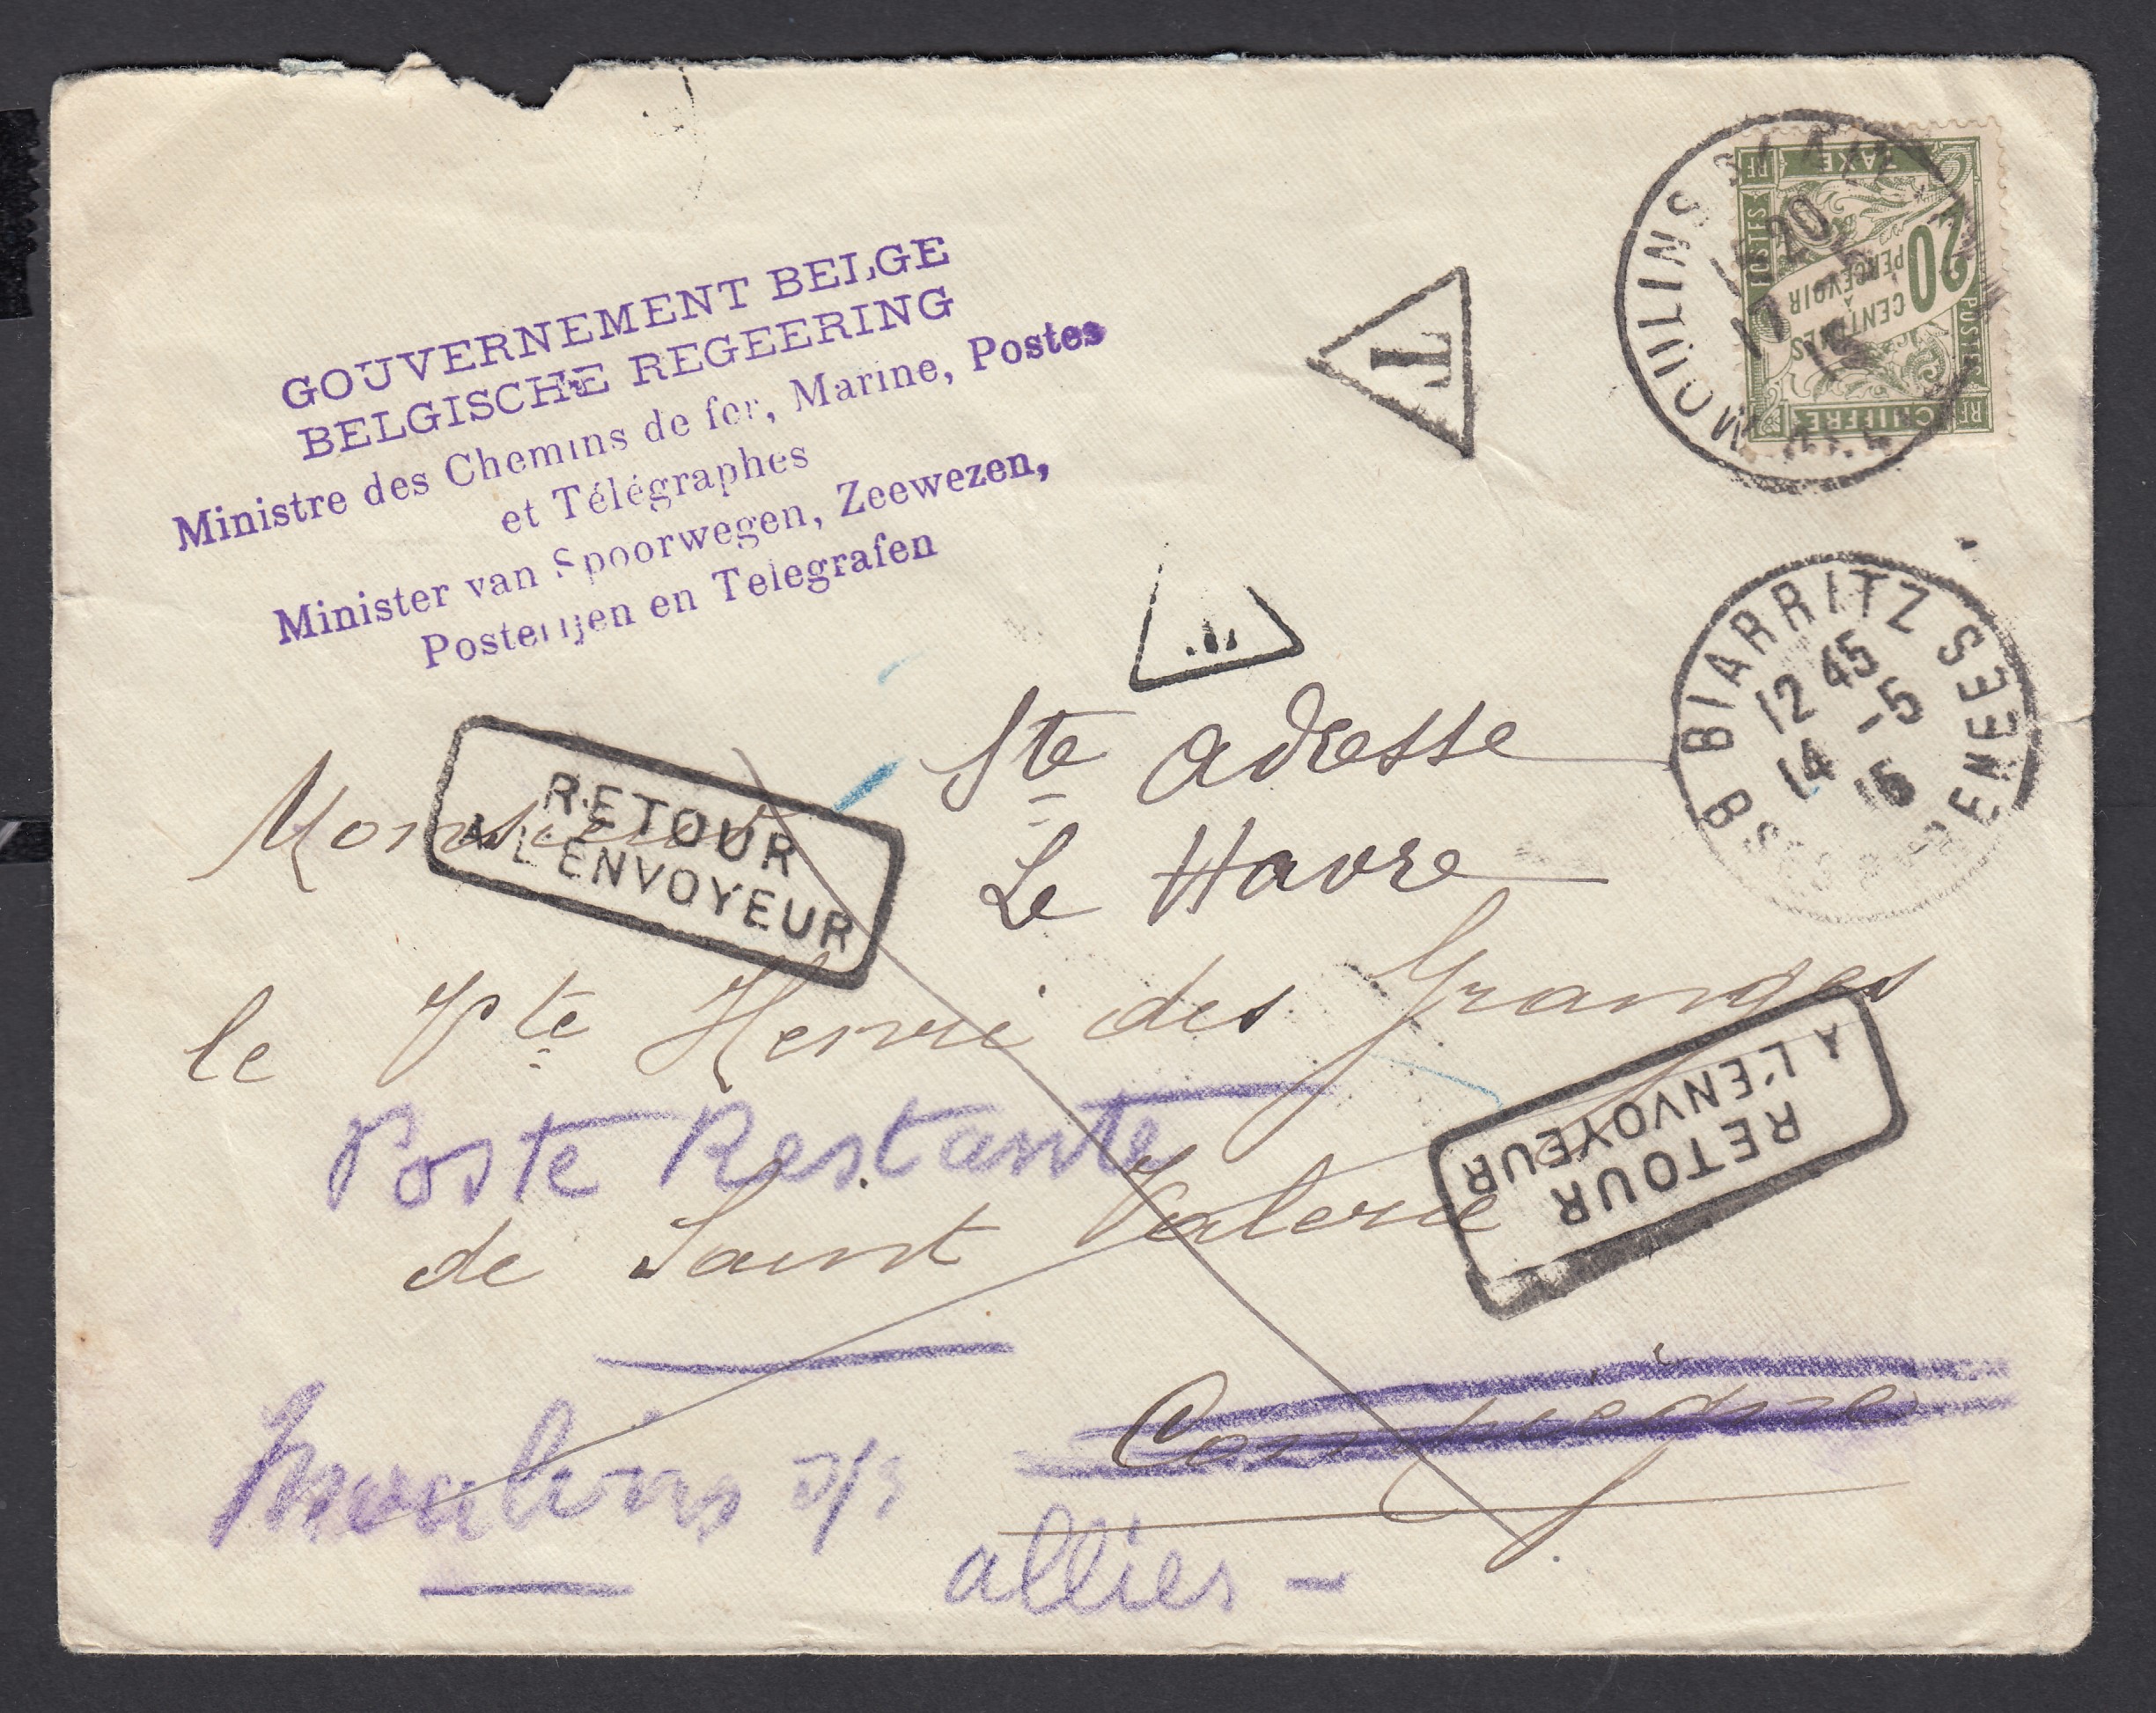 GOUVERNEMENT BELGE
BELGISCHE REGEERING
Ministre des Chemins de fer, Marine, Postes
et Télégraphes
Minister van Spoorwegen, Zeewezen,
Posterijen en Telegrafen
T
MOULINS
17
CHIFFRE TAXE
POSTES
POSTES
RF
RF
20
CENTIMES
À
PERCEVOIR
BIARRITZ
12 45
14 -5
15
B
Ste Adresse
Le Havre
RETOUR
A L'ENVOYEUR
Monsieur
le Vte Henri des Granges
Poste Restante
de Saint Valerie
RETOUR
A L'ENVOYEUR
Compiègne
Moulins s/s
allier -